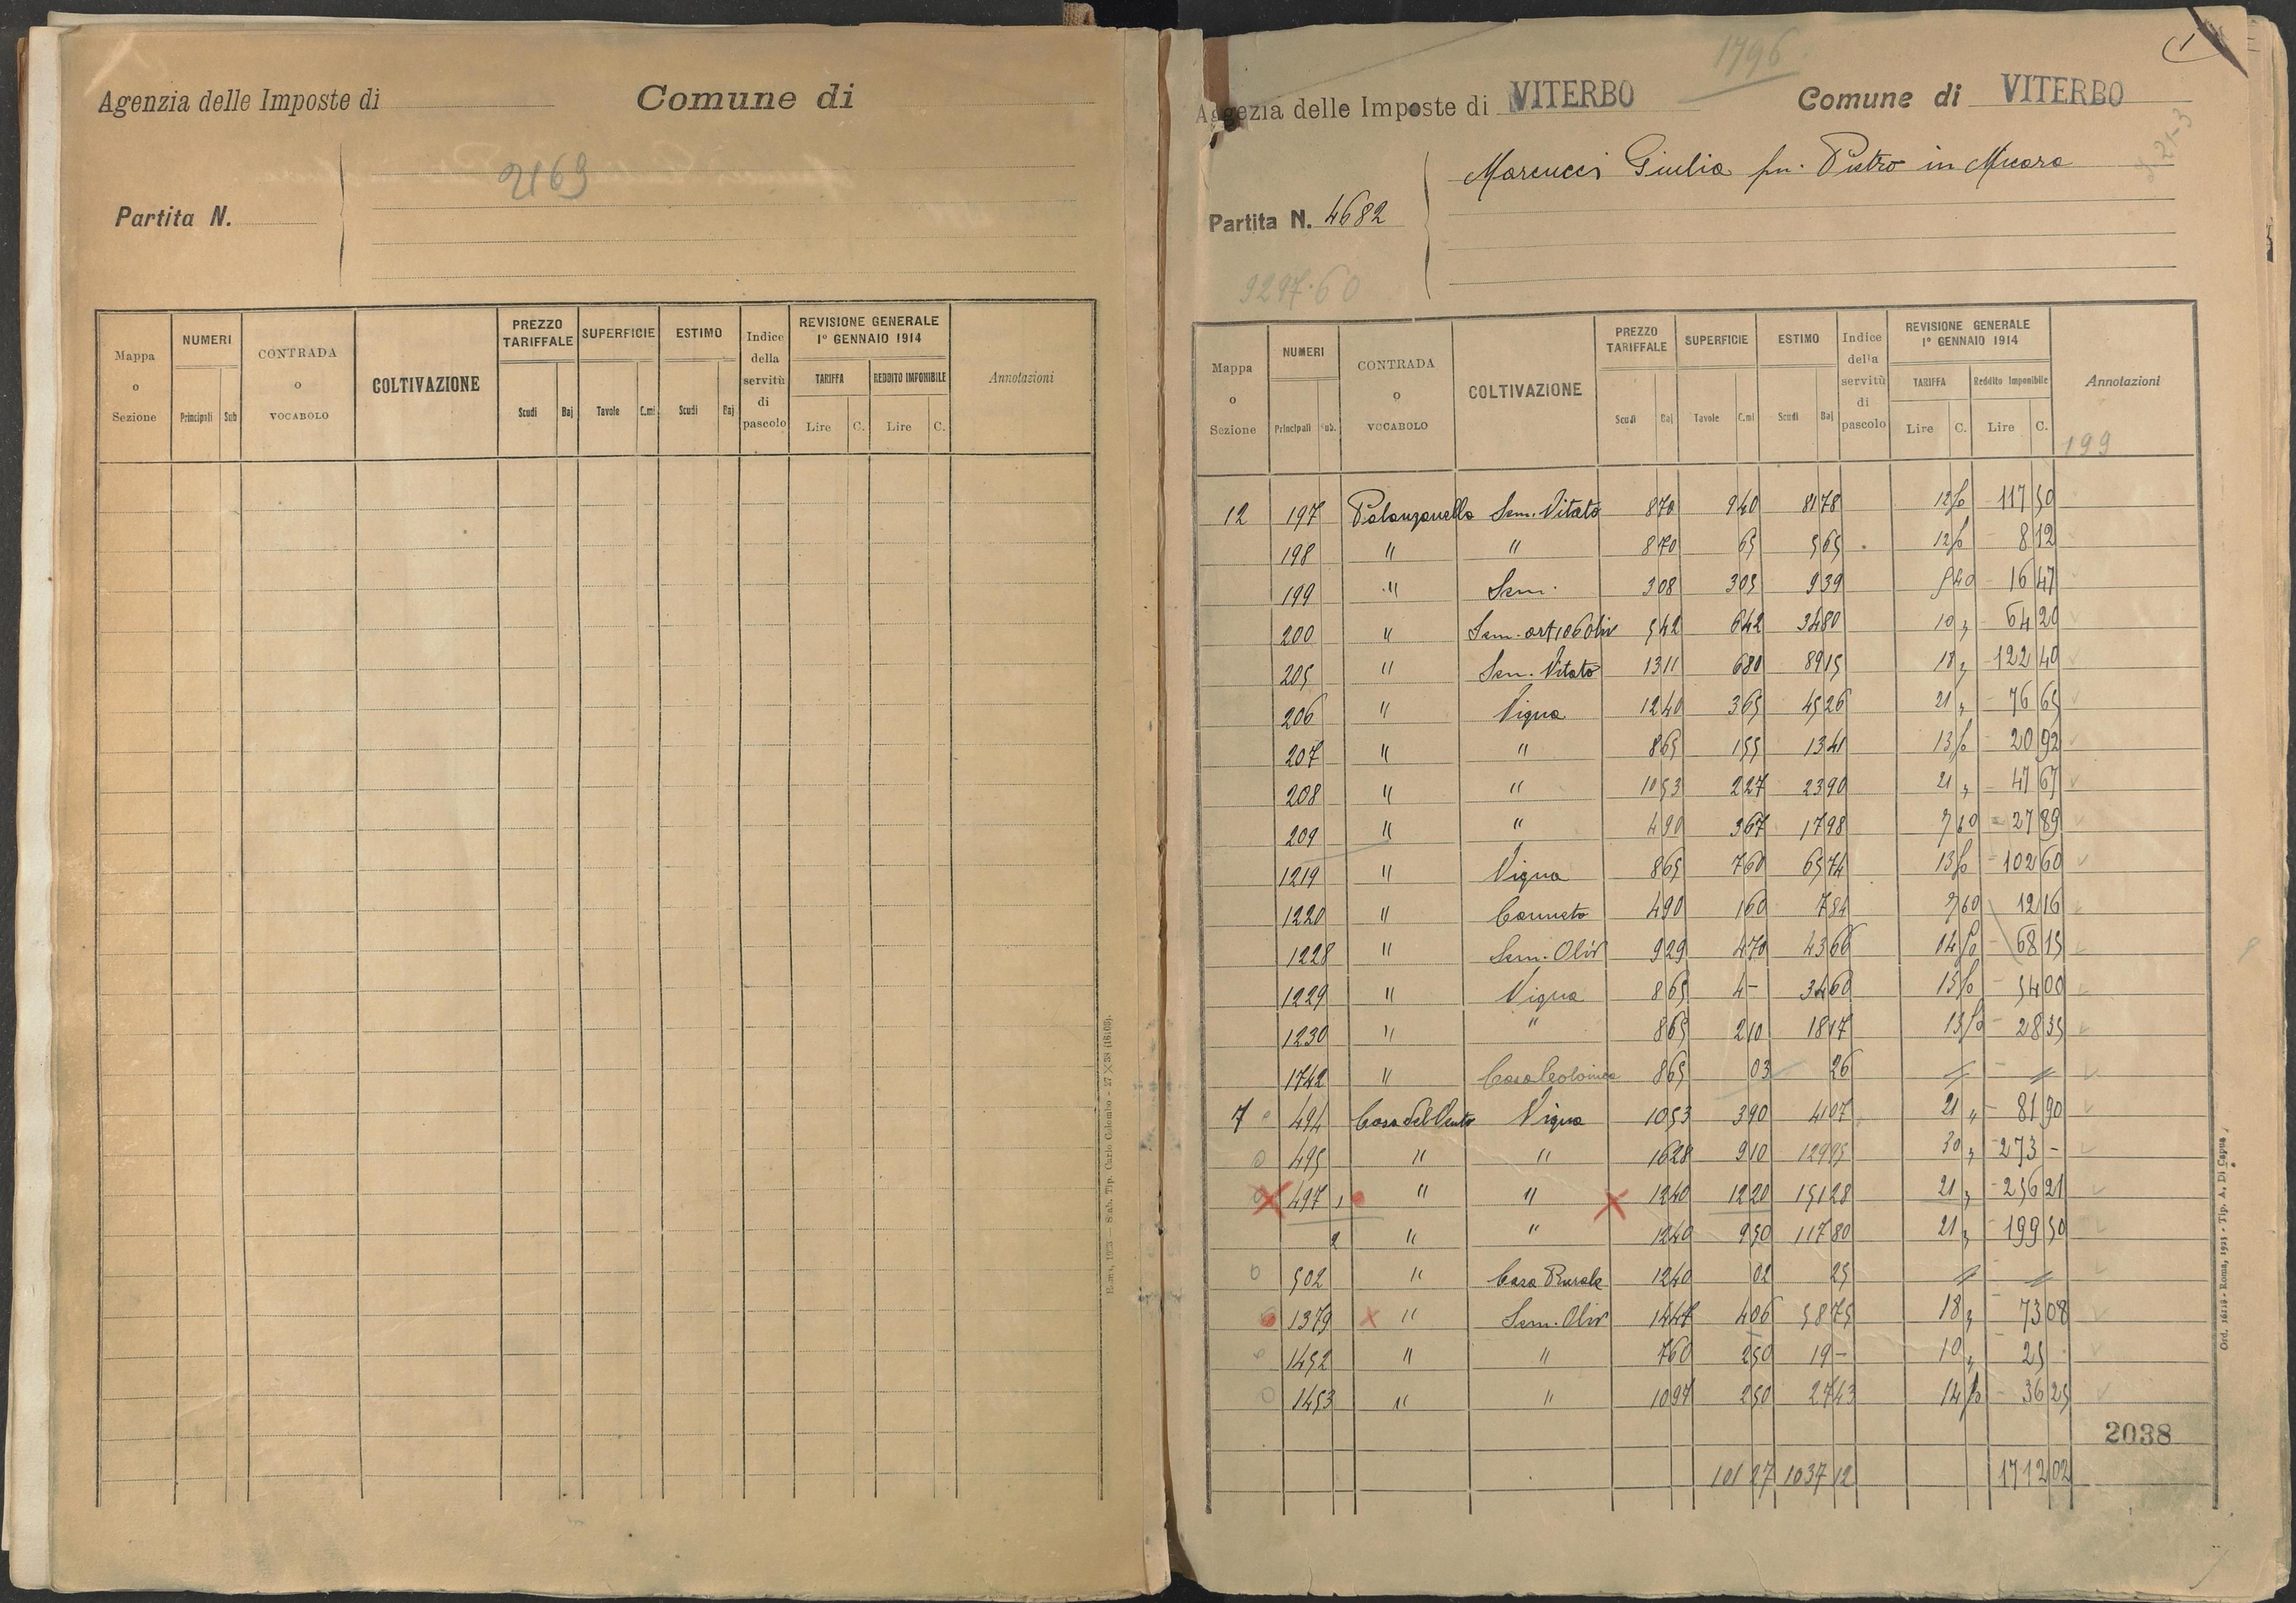 Agenzia delle Imposte di
Comune di
2169
Partita N.
Mappa o Sezione
NUMERI
Principali Sub
CONTRADA o VOCABOLO
COLTIVAZIONE
PREZZO TARIFFALE
Scudi Baj
SUPERFICIE
Tavole C.mi
ESTIMO
Scudi Baj
Indice della servitù di pascolo
REVISIONE GENERALE 1° GENNAIO 1914
TARIFFA REDDITO IMPONIBILE
Lire C. Lire C.
Annotazioni
1796
Agenzia delle Imposte di VITERBO
Comune di VITERBO
Marcucci Giulia fu. Pietro in Micara
Partita N. 4682
9297.60
Mappa o Sezione
NUMERI
Principali Sub.
CONTRADA o VOCABOLO
COLTIVAZIONE
PREZZO TARIFFALE
Scudi Baj
SUPERFICIE
Tavole C.mi
ESTIMO
Scudi Baj
Indice della servitù di pascolo
REVISIONE GENERALE 1° GENNAIO 1914
TARIFFA Reddito Imponibile
Lire C. Lire C.
Annotazioni
199
12 197 Palanzanella Sem. Vitato 8 70 9 40 81 78 12 50 117 50
198 " " 8 70 65 5 65 12 50 8 12
199 " Sem. 3 08 3 05 9 39 5 40 16 47
200 " Sem. art 106 Oliv 5 42 6 42 34 80 10 " 64 20
205 " Sem. Vitato 13 11 6 80 89 15 18 " 122 40
206 " Vigna 12 40 3 65 45 26 21 " 76 65
207 " " 8 65 1 55 13 41 13 50 20 92
208 " " 10 53 2 27 23 90 21 " 47 67
209 " " 4 90 3 67 17 98 7 60 27 89
1219 " Vigna 8 65 7 60 65 74 13 50 102 60
1220 " Canneto 4 90 1 60 7 84 7 60 12 16
1228 " Sem. Oliv 9 29 4 70 43 66 14 50 68 15
1229 " Vigna 8 65 4 - 34 60 13 50 54 00
1230 " " 8 65 2 10 18 17 13 50 28 35
1742 " Casa Colonica 8 65 03 26
7 494 Casa del Vento Vigna 10 53 3 90 41 07 21 " 81 90
495 " " 16 28 9 10 129 95 30 " 273 -
497 1 " " 12 40 12 20 151 28 21 " 256 21
2 " " 12 40 9 50 117 80 21 " 199 50
502 " Casa Rurale 12 40 02 25
1379 " Sem. Oliv 14 47 4 06 58 75 18 " 73 08
1452 " " 7 60 2 50 19 - 10 " 25
1453 " " 10 97 2 50 27 43 14 50 36 25
2038
101 27 1037 12 1712 02